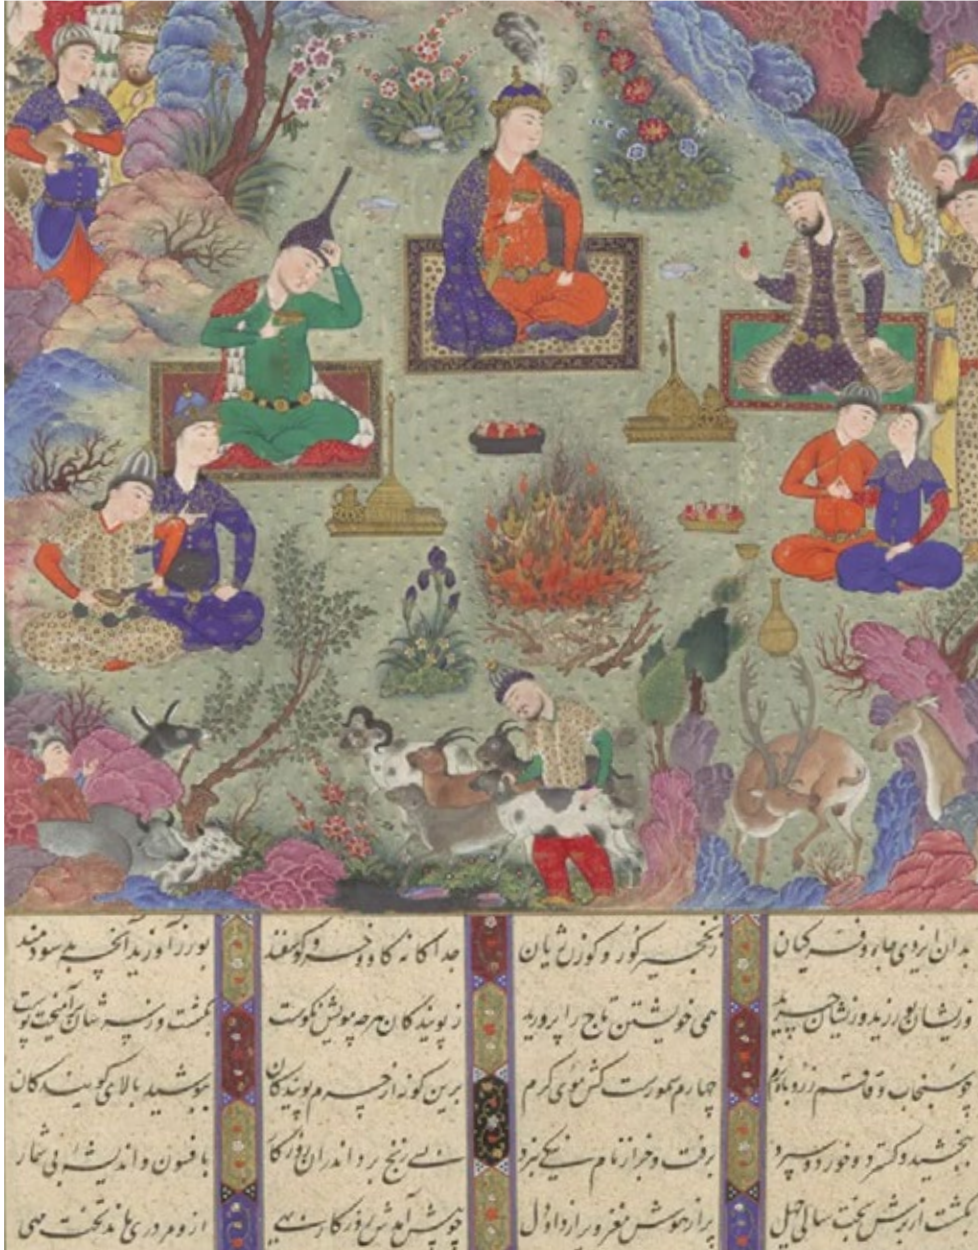 بدان ایزدی جاه و فر کیان ز نخجیر کور و کوزن ژیان جدا کانه کاو و خر و کوسفند بورز آورید آنچه بد سودمند
وزیشان بورزید وزیشان چرید همی خویشتن تاج را پرورید ز پویندکان هرچه مویش نکوست بکشت وز سرشان برآهیخت پوست
چو سنجاب و قاقم چهارم سمورست کش موی کرم برین کونه از چرم پویندکان بپوشید بالای کویندکان
ببخشید و کسترد و خورد و سپرد برفت و جز از نام نیکی نبرد بسی رنج برد اندران روزکار بافسون و اندیشه بی شمار
بکشت از برش بخت سالی چهل پر از هوش مغز و پر از داد دل چو پیش آمدش روزکار بهی ازو مردری ماند تخت مهی